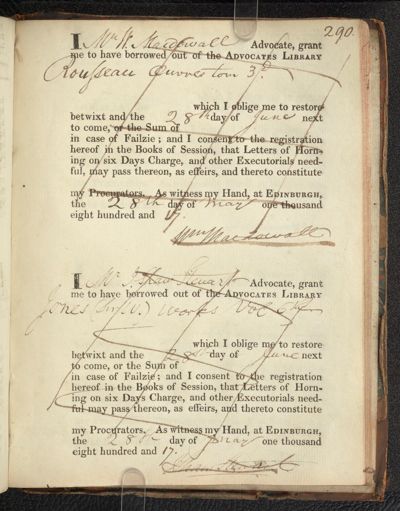 290
I Mr W. Macdowall Advocate, grant
me to have borrowed out of the ADVOCATES LIBRARY
Rousseau Œuvres tom 3d.
which I oblige me to restore
betwixt and the 28th day of June next
to come, or the Sum of
in case of Failzie; and I consent to the registration
hereof in the Books of Session, that Letters of Horn-
ing on six Days Charge, and other Executorials need-
ful, may pass thereon, as effeirs, and thereto constitute
my Procurators. As witness my Hand, at EDINBURGH,
the 28th day of May one thousand
eight hundred and 17.
Wm Macdowall
I Mr Steuart Advocate, grant
me to have borrowed out of the ADVOCATES LIBRARY
Jones (Sir W.) Works Vol 6
which I oblige me to restore
betwixt and the 28 day of June next
to come, or the Sum of
in case of Failzie; and I consent to the registration
hereof in the Books of Session, that Letters of Horn-
ing on six Days Charge, and other Executorials need-
ful may pass thereon, as effeirs, and thereto constitute
my Procurators. As witness my Hand, at EDINBURGH,
the 28th day of May one thousand
eight hundred and 17.